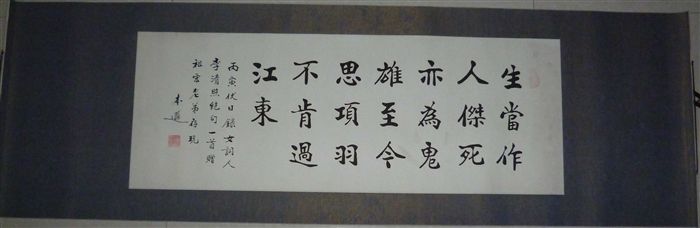 生當作
人傑死
亦為鬼
雄至今
思項羽
不肯過
江東
丙寅伏日錄女詞人
李清照絕句一首贈
祖雲老弟存玩